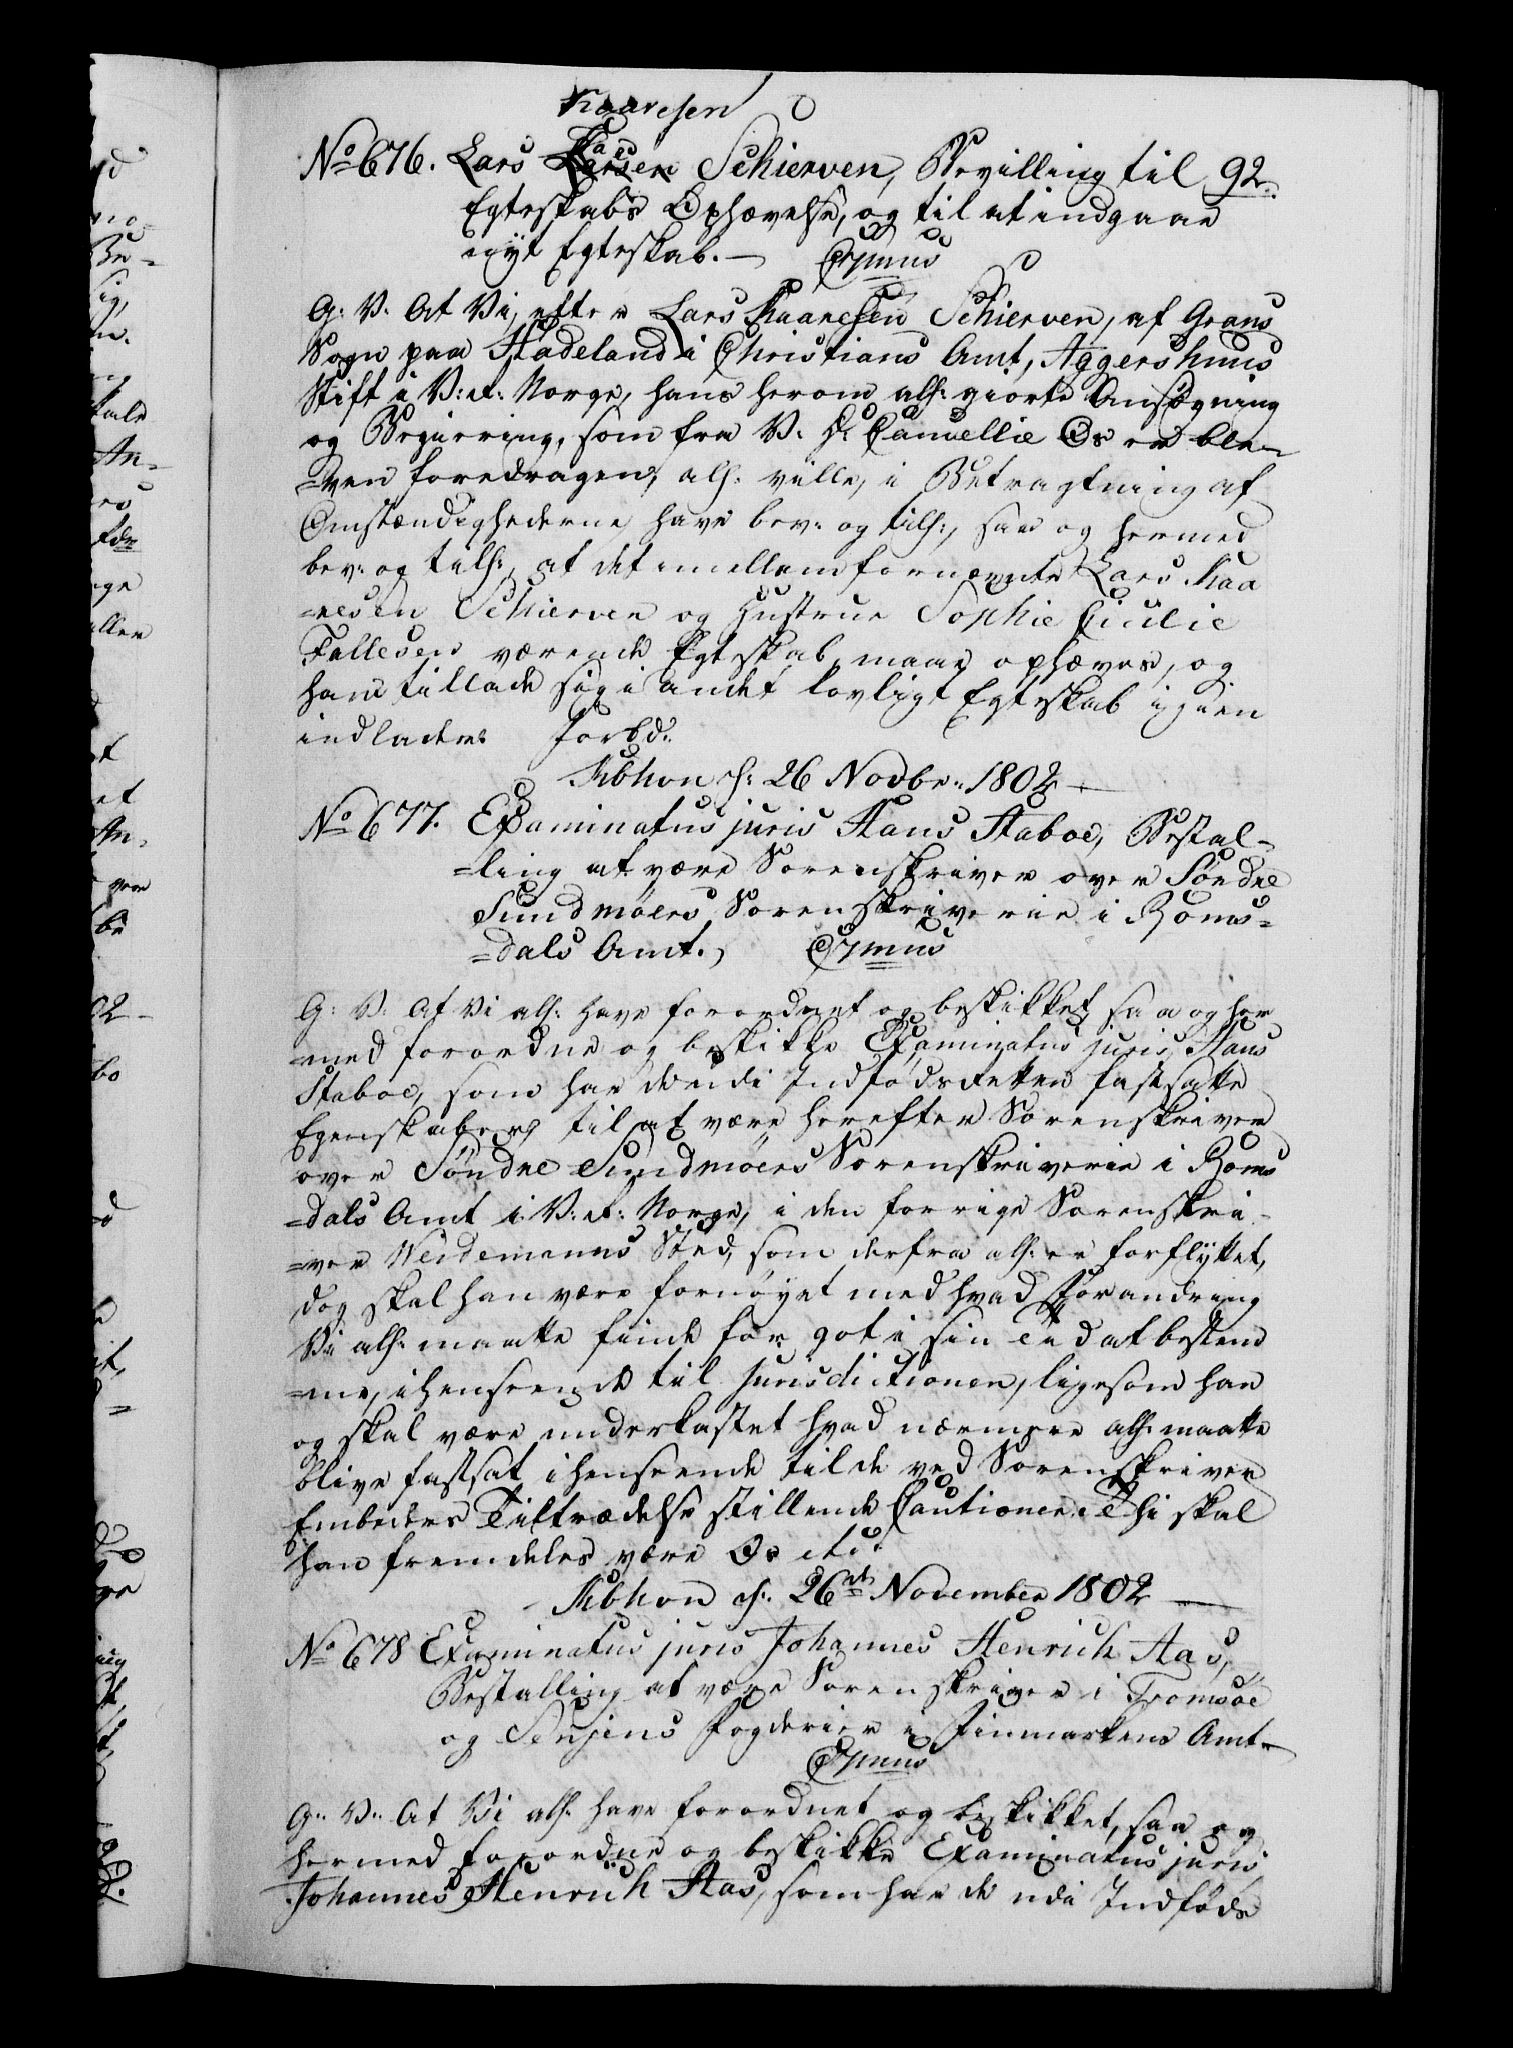 Kaaresen
No 676. Lars Larsen Schierven, Bevilling til 92.
Egteskabs Ophævelse, og til at indgaae
nyt Egteskab. — Cr 7mus
G: V. At Vi, efter Lars Kaaresen Schierven, af Grans
Sogn paa Hadeland i Christians Amt, Aggershuus
Stift i V: R: Norge, hans herom alh: giorte Ansøgning
og Begiering, som fra V. D: Cancellie Os er ble-
=ven foredragen, alh: ville, i Betragtning af
Omstændighederne, have bev: og tilh:, saa og hermed
bev: og tilh:, at det imellem fornævnte Lars Kaa
=resen Schierven og Hustrue Sophie Cicilie
Fallesen værende Egteskab, maae ophæves, og
ham tillade sig i andet lovligt Egteskab igien
indlade. Forbd:
Kbhvn d: 26 Novbr: 1802 —
No 677. Examinatus juris Hans Staboe, Bestal-
=ling at være Sorenskriver over Söndre
Sundmöers Sorenskriverie i Roms=
=dals Amt., Cr 7mus
G: V: At Vi alh: have forordnet og beskikket saa og her
=med forordne og beskikke Examinatus juris Hans
Staboe, som har de udi Indfødsretten fastsatte
Egenskaber, til at være herefter Sorenskriver
over Söndre Sundmöers Sorenskriverie i Roms
=dals Amt i V: R: Norge, i den forrige Sorenskri-
=ver Weidemanns Sted, som derfra alh: er forflyttet,
dog skal han være fornøyet med hvad Forandring
Vi alh: maatte finde for got i sin Tid at bestem
=me, i henseende til Jurisdictionen, ligesom han
og skal være underkastet hvad nærmere alh: maatte
blive fastsat i henseende til de ved Sorenskriver
Embeders Tiltrædelse stillende Cautioner: Thi skal
han fremdeles være Os etc.
Kbhvn d: 26de November 1802 —
No 678 Examinatus juris Johannes Henrich Aas,
Bestalling at være Sorenskriver i Tromsöe
og Senjens Fogderier i Finmarkens Amt —
Cr 7mus
G: V: At Vi alh: have forordnet og beskikket, saa og
hermed forordne og beskikke Examinatus juris
Johannes Henrich Aas, som har de udi Indføds